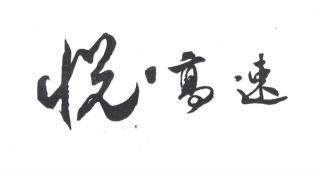 悦·高速